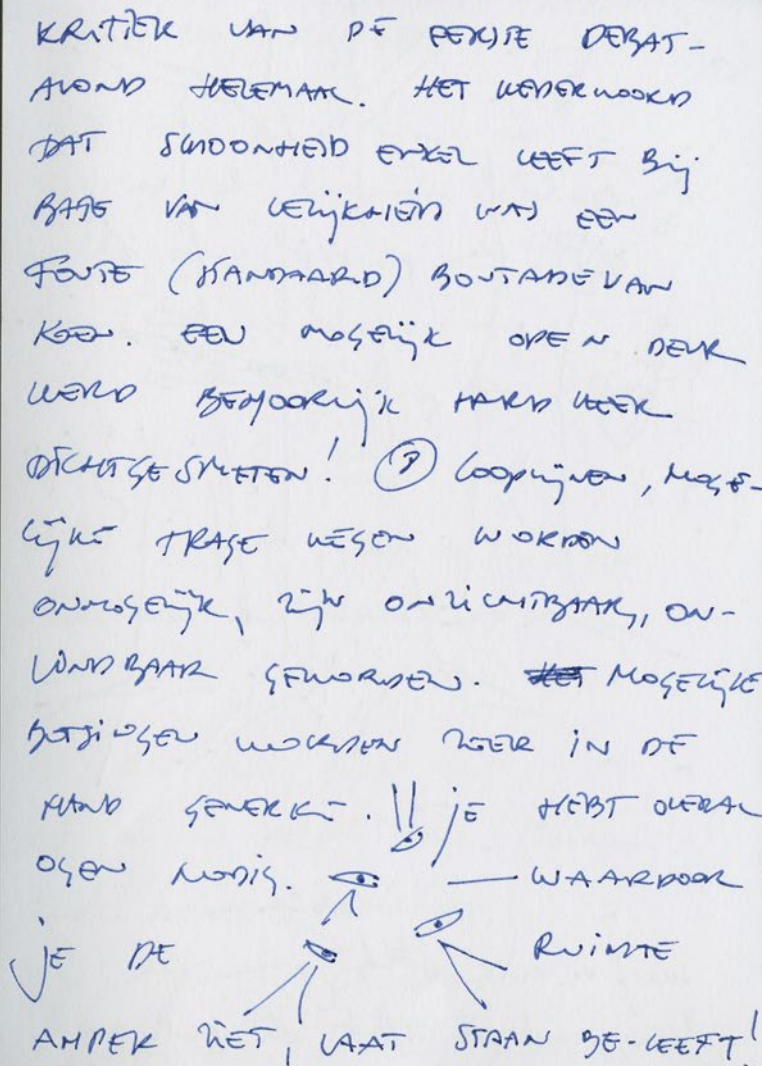 KRITIEK VAN DE EERSTE DEBAT-
AVOND HELEMAAL. HET WEDERWOORD
DAT SCHOONHEID ENKEL LEEFT BIJ
GRATIE VAN LELIJKHEID WAS EEN
FOUTE (STANDAARD) BOUTADE VAN
KOEN. EEN MOGELIJK OPEN DEUR
WERD BEHOORLIJK HARD WEER
DICHTGESMETEN! LOOPLIJNEN, MOGE-
LIJKE TRAGE WEGEN WORDEN
ONMOGELIJK, ZIJN ONZICHTBAAR, ON-
VINDBAAR GEWORDEN. MOGELIJKE
BOTSINGEN WORDEN ZEER IN DE
HAND GEWERKT. JE HEBT OVERAL
OGEN NODIG. WAARDOOR
JE DE RUIMTE
AMPER ZIET, LAAT STAAN BE-LEEFT!